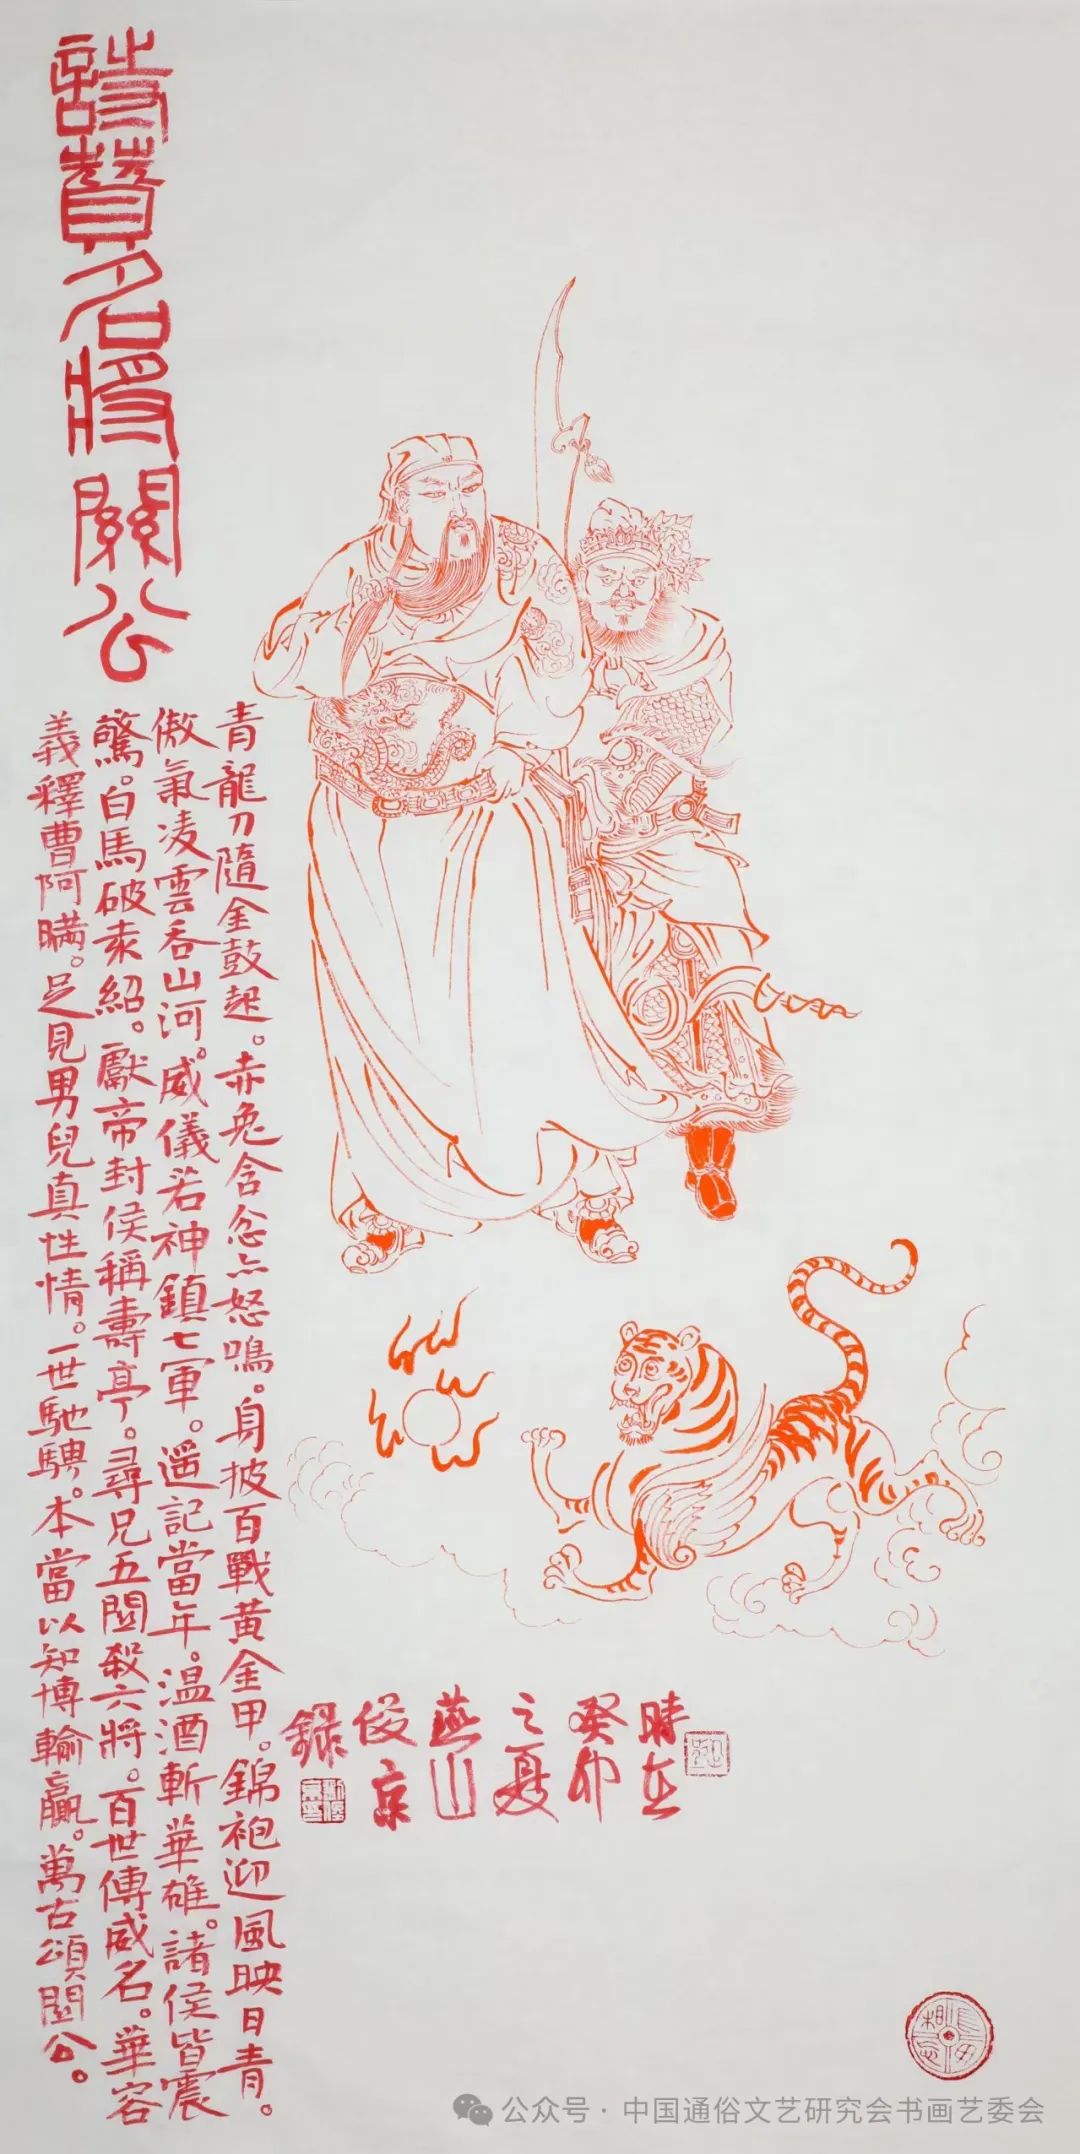 詩贊名將關公
青龍刀隨金鼓起。赤兔含忿亦怒鳴。身披百戰黃金甲。錦袍迎風映日青。
傲氣凌雲吞山河。威儀若神鎮七軍。遥記當年。温酒斬華雄。諸侯皆震
驚。白馬破袁紹。獻帝封侯稱壽亭。尋兄五関殺六將。百世傳威名。華容
義釋曹阿瞞。足見男兒真性情。一世馳騁。本當以知博輸贏。萬古頌関公。
時在
癸卯
之夏
燕山
俊京
録
公众号·中国通俗文艺研究会书画艺委会